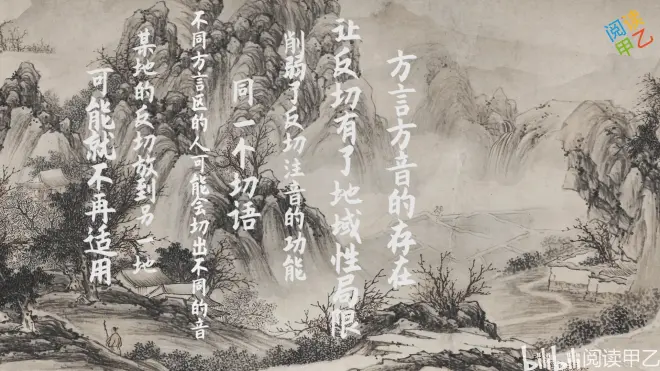 方言方音的存在
让反切有了地域性局限
削弱了反切注音的功能
同一个切语
不同方言区的人可能会切出不同的音
某地的反切放到另一地
可能就不再适用
阅读
甲乙
bilibili 阅读甲乙